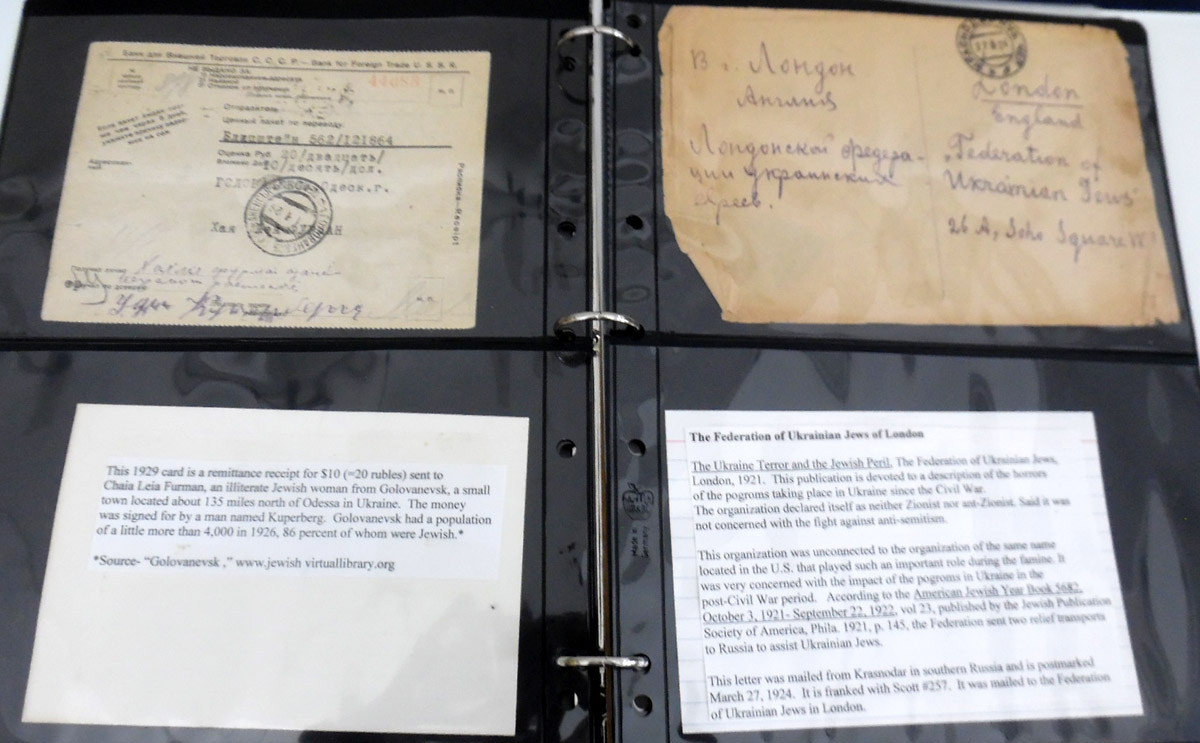 Банк для Внешней Торговли С. С. С. Р. — Bank for Foreign Trade U. S. S. R.
НЕ ВЫДАНО ЗА:
44088
М. П.
Отправитель
Ценный пакет по переводу:
562/121864
Оценка Руб. 20/двадцать/
10/десять/дол.
Одеск.г.
Хая
Расписка—Receipt
М. П.
В г. Лондон
Англия
Лондонской федера-
ции украинских
евреев.
London
England
"Federation of
Ukrainian Jews"
26 A, Soho Square W1
This 1929 card is a remittance receipt for $10 (=20 rubles) sent to
Chaia Leia Furman, an illiterate Jewish woman from Golovanevsk, a small
town located about 135 miles north of Odessa in Ukraine. The money
was signed for by a man named Kuperberg. Golovanevsk had a population
of a little more than 4,000 in 1926, 86 percent of whom were Jewish.*
*Source- “Golovanevsk ,” www.jewish virtuallibrary.org
Made in
Germany
The Federation of Ukrainian Jews of London
The Ukraine Terror and the Jewish Peril, The Federation of Ukrainian Jews,
London, 1921. This publication is devoted to a description of the horrors
of the pogroms taking place in Ukraine since the Civil War.
The organization declared itself as neither Zionist nor ant-Zionist. Said it was
not concerned with the fight against anti-semitism.
This organization was unconnected to the organization of the same name
located in the U.S. that played such an important role during the famine. It
was very concerned with the impact of the pogroms in Ukraine in the
post-Civil War period. According to the American Jewish Year Book 5682,
October 3, 1921- September 22, 1922, vol 23, published by the Jewish Publication
Society of America, Phila. 1921, p. 145, the Federation sent two relief transports
to Russia to assist Ukrainian Jews.
This letter was mailed from Krasnodar in southern Russia and is postmarked
March 27, 1924. It is franked with Scott #257. It was mailed to the Federation
of Ukrainian Jews in London.